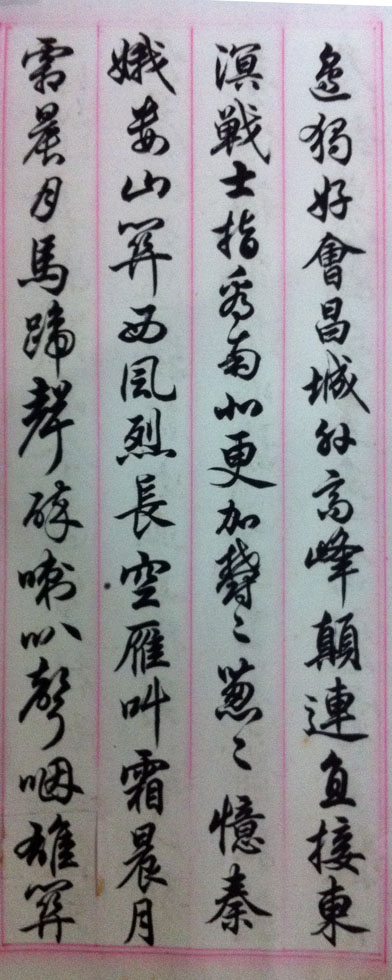 邊獨好會昌城外高峰顛連直接東
溟戰士指看南北更加鬱〻蔥〻憶秦
娥婁山關西風烈長空雁叫霜晨月
霜晨月馬蹄聲碎喇叭聲咽雄關